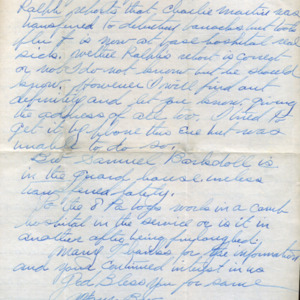 Ralph reports that Charlie Martin was
transferred to detention barracks but
is now at base hospital
sick. Ralph's report is correct
or not I do not know but he should
know. However I will find out
definitely and let you know, giving
the address of all too. I tried to
get it by phone this eve but was
unable to do so.
Bro. Samuel Barkdoll is
in the guard house unless
transferred lately.
the works in a
hospital in the service or is it in
another after being furloughed.
Many thanks for the information
and your continued interest in us
God Bless you for same